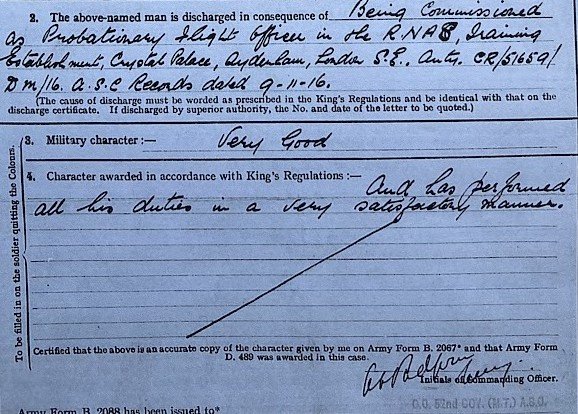 2. The above-named man is discharged in consequence of Being Commissioned
as Probationary Flight Officer in the R.N.A.S, Training
Establishment, Crystal Palace, Sydenham, London S.E., Auty. CR/51659/
DM/16. A.S.C Records dated 9-11-16.
(The cause of discharge must be worded as prescribed in the King's Regulations and be identical with that on the
discharge certificate. If discharged by superior authority, the No. and date of the letter to be quoted.)
To be filled in on the soldier quitting the Colours.
3. Military character :— Very Good
4. Character awarded in accordance with King's Regulations :— And has performed
all his duties in a very satisfactory manner.
Certified that the above is an accurate copy of the character given by me on Army Form B. 2067* and that Army Form
D. 489 was awarded in this case.
Initials of Commanding Officer.
(M.T.) A.S.C.
Army Form B. 2088 has been issued to*